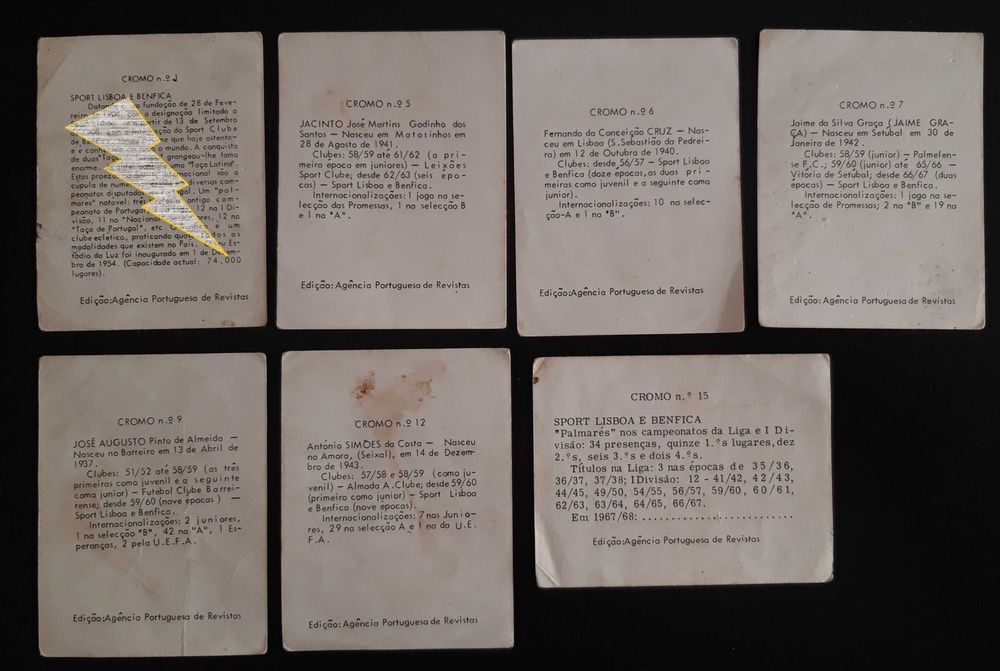 CROMO n.º 1
SPORT LISBOA E BENFICA
fundação de 28 de Feve-
designação limitado a
partir de 13 de Setembro
do Sport Clube
de que hoje ostenta-
e é mundo. A conquista
de duas "Taça Latina".
enorme.
Estas proezas nacional são a
cupula de diversos cam-
peonatos Um "pal-
mares" notavel: antigo cam-
peonato de Portugal, 12 na I Di-
visão, 11 no "Nacional 12 na
"Taça de Portugal", etc. é um
clube ecletico, praticando as
modalidades que existem no País. Es-
tádio da Luz foi inaugurado em 1 de
bro de 1954. (Capacidade actual: 74.000
lugares).
Edição:Agência Portuguesa de Revistas
CROMO n.º 5
JACINTO José Martins Godinho dos
Santos — Nasceu em Matosinhos em
28 de Agosto de 1941.
Clubes: 58/59 até 61/62 (a pri-
meira epoca em juniores) — Leixões
Sport Clube; desde 62/63 (seis épo-
cas) — Sport Lisboa e Benfica.
Internacionalizações: 1 jogo na se-
lecção das Promessas, 1 na selecção B
e 1 na "A".
Edição:Agência Portuguesa de Revistas
CROMO n.º 6
Fernando da Conceição CRUZ — Nas-
ceu em Lisboa (S.Sebastião da Pedrei-
ra) em 12 de Outubro de 1940.
Clubes: desde 56/57 — Sport Lisboa
e Benfica (doze épocas,as duas pri-
meiras como juvenil e a seguinte como
junior).
Internacionalizações: 10 na selec-
ção-A e 1 na "B".
Edição:Agência Portuguesa de Revistas
CROMO n.º 7
Jaime da Silva Graça (JAIME GRA-
ÇA) — Nasceu em Setubal em 30 de
Janeiro de 1942.
Clubes: 58/59 (junior) — Palmelen-
se F.C.; 59/60 (junior) até 65/66 —
Vitoria de Setubal; desde 66/67 (duas
épocas) — Sport Lisboa e Benfica.
Internacionalizações: 1 jogo na se-
lecção de Promessas; 2 na "B" e 19 na
"A".
Edição:Agência Portuguesa de Revistas
CROMO n.º 9
JOSÉ AUGUSTO Pinto de Almeida —
Nasceu no Barreiro em 13 de Abril de
1937.
Clubes: 51/52 até 58/59 (as três
primeiras como juvenil e a seguinte
como junior) — Futebol Clube Barrei-
rense; desde 59/60 (nove épocas) —
Sport Lisboa e Benfica.
Internacionalizações: 2 juniores,
1 na selecção "B", 42 na "A", 1 Es-
peranças, 2 pela U.E.F.A.
Edição:Agência Portuguesa de Revistas
CROMO n.º 12
António SIMÕES da Costa — Nasceu
na Amora, (Seixal), em 14 de Dezem-
bro de 1943.
Clubes: 57/58 e 58/59 (como ju-
venil) — Almada A.Clube; desde 59/60
(primeiro como junior) — Sport Lisboa
e Benfica (nove épocas).
Internacionalizações: 7 nas Junio-
res, 29 na selecção A e 1 na da U.E.
F.A.
Edição:Agência Portuguesa de Revistas
CROMO n.º 15
SPORT LISBOA E BENFICA
"Palmarés" nos campeonatos da Liga e I Di-
visão: 34 presenças, quinze 1.ºs lugares,dez
2.ºs, seis 3.ºs e dois 4.ºs.
Títulos na Liga: 3 nas épocas de 35/36,
36/37, 37/38; IDivisão: 12 - 41/42, 42/43,
44/45, 49/50, 54/55, 56/57, 59/60, 60/61,
62/63, 63/64, 64/65, 66/67.
Em 1967/68: ........................
Edição:Agência Portuguesa de Revistas